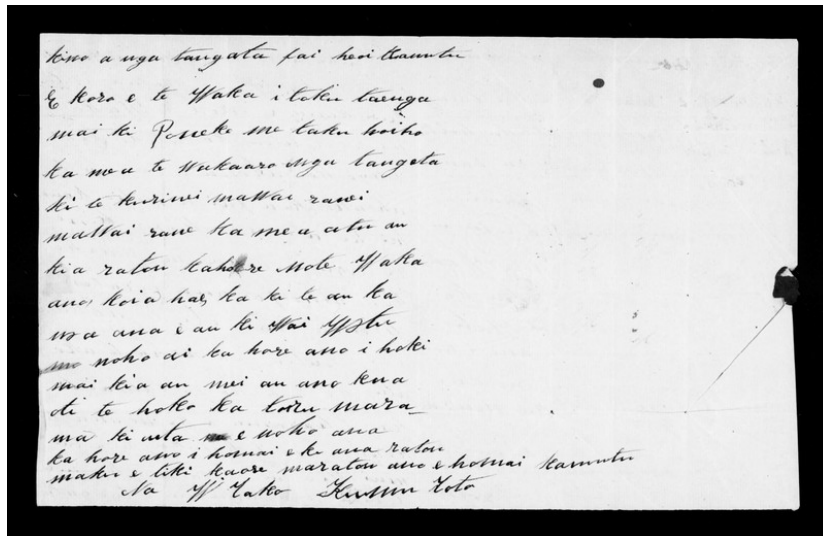 kino a nga tangata hai heoi kamutu
E koro e te Waka i toku taenga
mai ki Poneke me taku hoiho
ka mea te Wakaaro nga tangata
ki te kuriwi maWai rawi
maWai rawe ka mea atu au
kia ratou kahore Mote Waka
ano koia hae ka ki te au ka
ana e au ki Wai
mo noho ai ka hore ano i hoki
mai kia au mei au ano kua
oti te hoko ka toru mara
ma ki uta e noho ana
ka hore ano i homai e ke ana ratou
maku e tiki kaore maratou ano e homai kamutu
Na W Tako